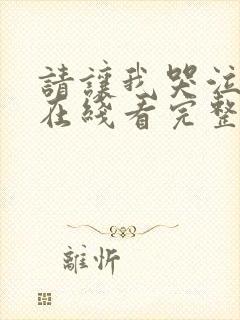 請讓我哭泣
在綫看完整
離忻